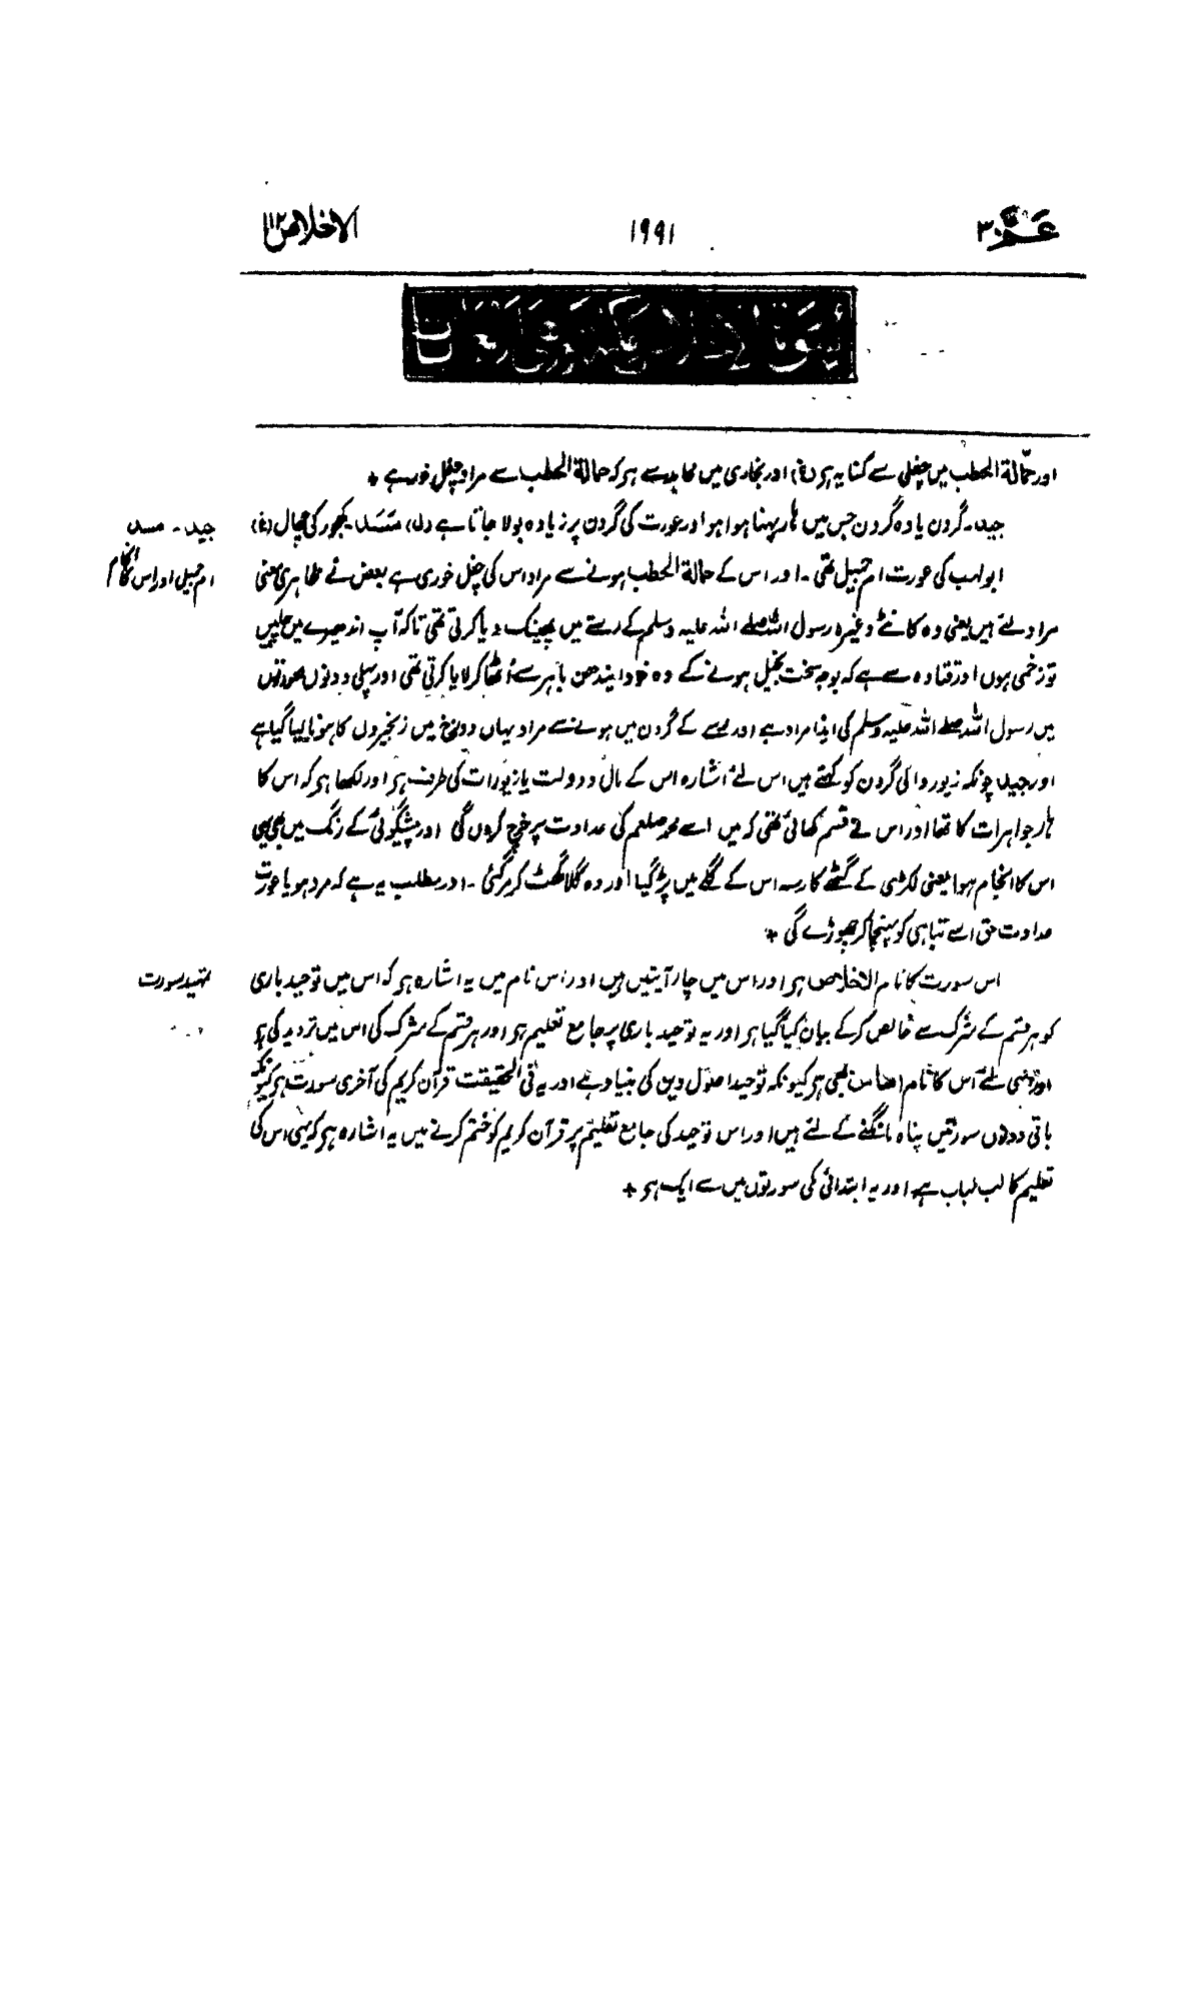 عمّ ۳۰
۱۹۹۱
الاخلاص ۱۱۲
اور حمّالة الحطب میں چغلی سے کنایہ ہو (غ) اور بخاری میں مجاہد سے ہو کہ حمالة الحطب سے مراد چغل خور ہے +
جید۔ گردن یا وہ گردن جس میں ہار پہنا ہوا ہو اور عورت کی گردن پر زیادہ بولا جاتا ہے (ل) مَسَد۔ کھجور کی چھال (غ)
جید۔ مسد
ابولہب کی عورت ام جمیل تھی۔ اور اس کے حمالة الحطب ہونے سے مراد اس کی چغل خوری ہے بعض نے ظاہری معنی
ام جمیل اور اس کا انجام
مراد لئے ہیں یعنی وہ کانٹے وغیرہ رسول اللہ صلے اللہ علیہ وسلم کے رستے میں پھینک دیا کرتی تھی تاکہ آپ اندھیرے میں چلیں
تو زخمی ہوں اور قتادہ سے ہے کہ بوجہ سخت بخیل ہونے کے وہ خود ایندھن باہر سے اُٹھا کر لایا کرتی تھی اور پہلی دونوں صورتوں
میں رسول اللہ صلے اللہ علیہ وسلم کی ایذا مراد ہے اور رسے کے گردن میں ہونے سے مراد یہاں دوزخ میں زنجیروں کا ہونا لیا گیا ہے
اور جید چونکہ زیور والی گردن کو کہتے ہیں اس لئے اشارہ اس کے مال و دولت یا زیورات کی طرف ہو اور لکھا ہو کہ اس کا
ہار جواہرات کا تھا اور اس نے قسم کھائی تھی کہ میں اسے محمد صلعم کی عداوت پر خرچ کروں گی اور پیشگوئی کے رنگ میں بھی یہی
اس کا انجام ہوا یعنی لکڑی کے گٹھے کا رسہ اس کے گلے میں پڑ گیا اور وہ گلا گھٹ کر مر گئی۔ اور مطلب یہ ہے کہ مرد ہو یا عورت
عداوت حق اسے تباہی کو پہنچا کر چھوڑے گی +
اس سورت کا نام الاخلاص ہو اور اس میں چار آیتیں ہیں اور اس نام میں یہ اشارہ ہو کہ اس میں توحید باری
تمہید سورت
کو ہر قسم کے شرک سے خالص کر کے بیان کیا گیا ہو اور یہ توحید باری پر جامع تعلیم ہو اور ہر قسم کے شرک کی اس میں تردید کی ہو
اور اسی لئے اس کا نام اساس بھی ہو کیونکہ توحید اصول دین کی بنیاد ہے اور یہ فی الحقیقت قرآن کریم کی آخری سورت ہو کیونکہ
باقی دونوں سورتیں پناہ مانگنے کے لئے ہیں اور اس توحید کی جامع تعلیم پر قرآن کریم کو ختم کرنے میں یہ اشارہ ہو کہ یہی اس کی
تعلیم کا لب لباب ہے اور یہ ابتدائی مکی سورتوں میں سے ایک ہو +